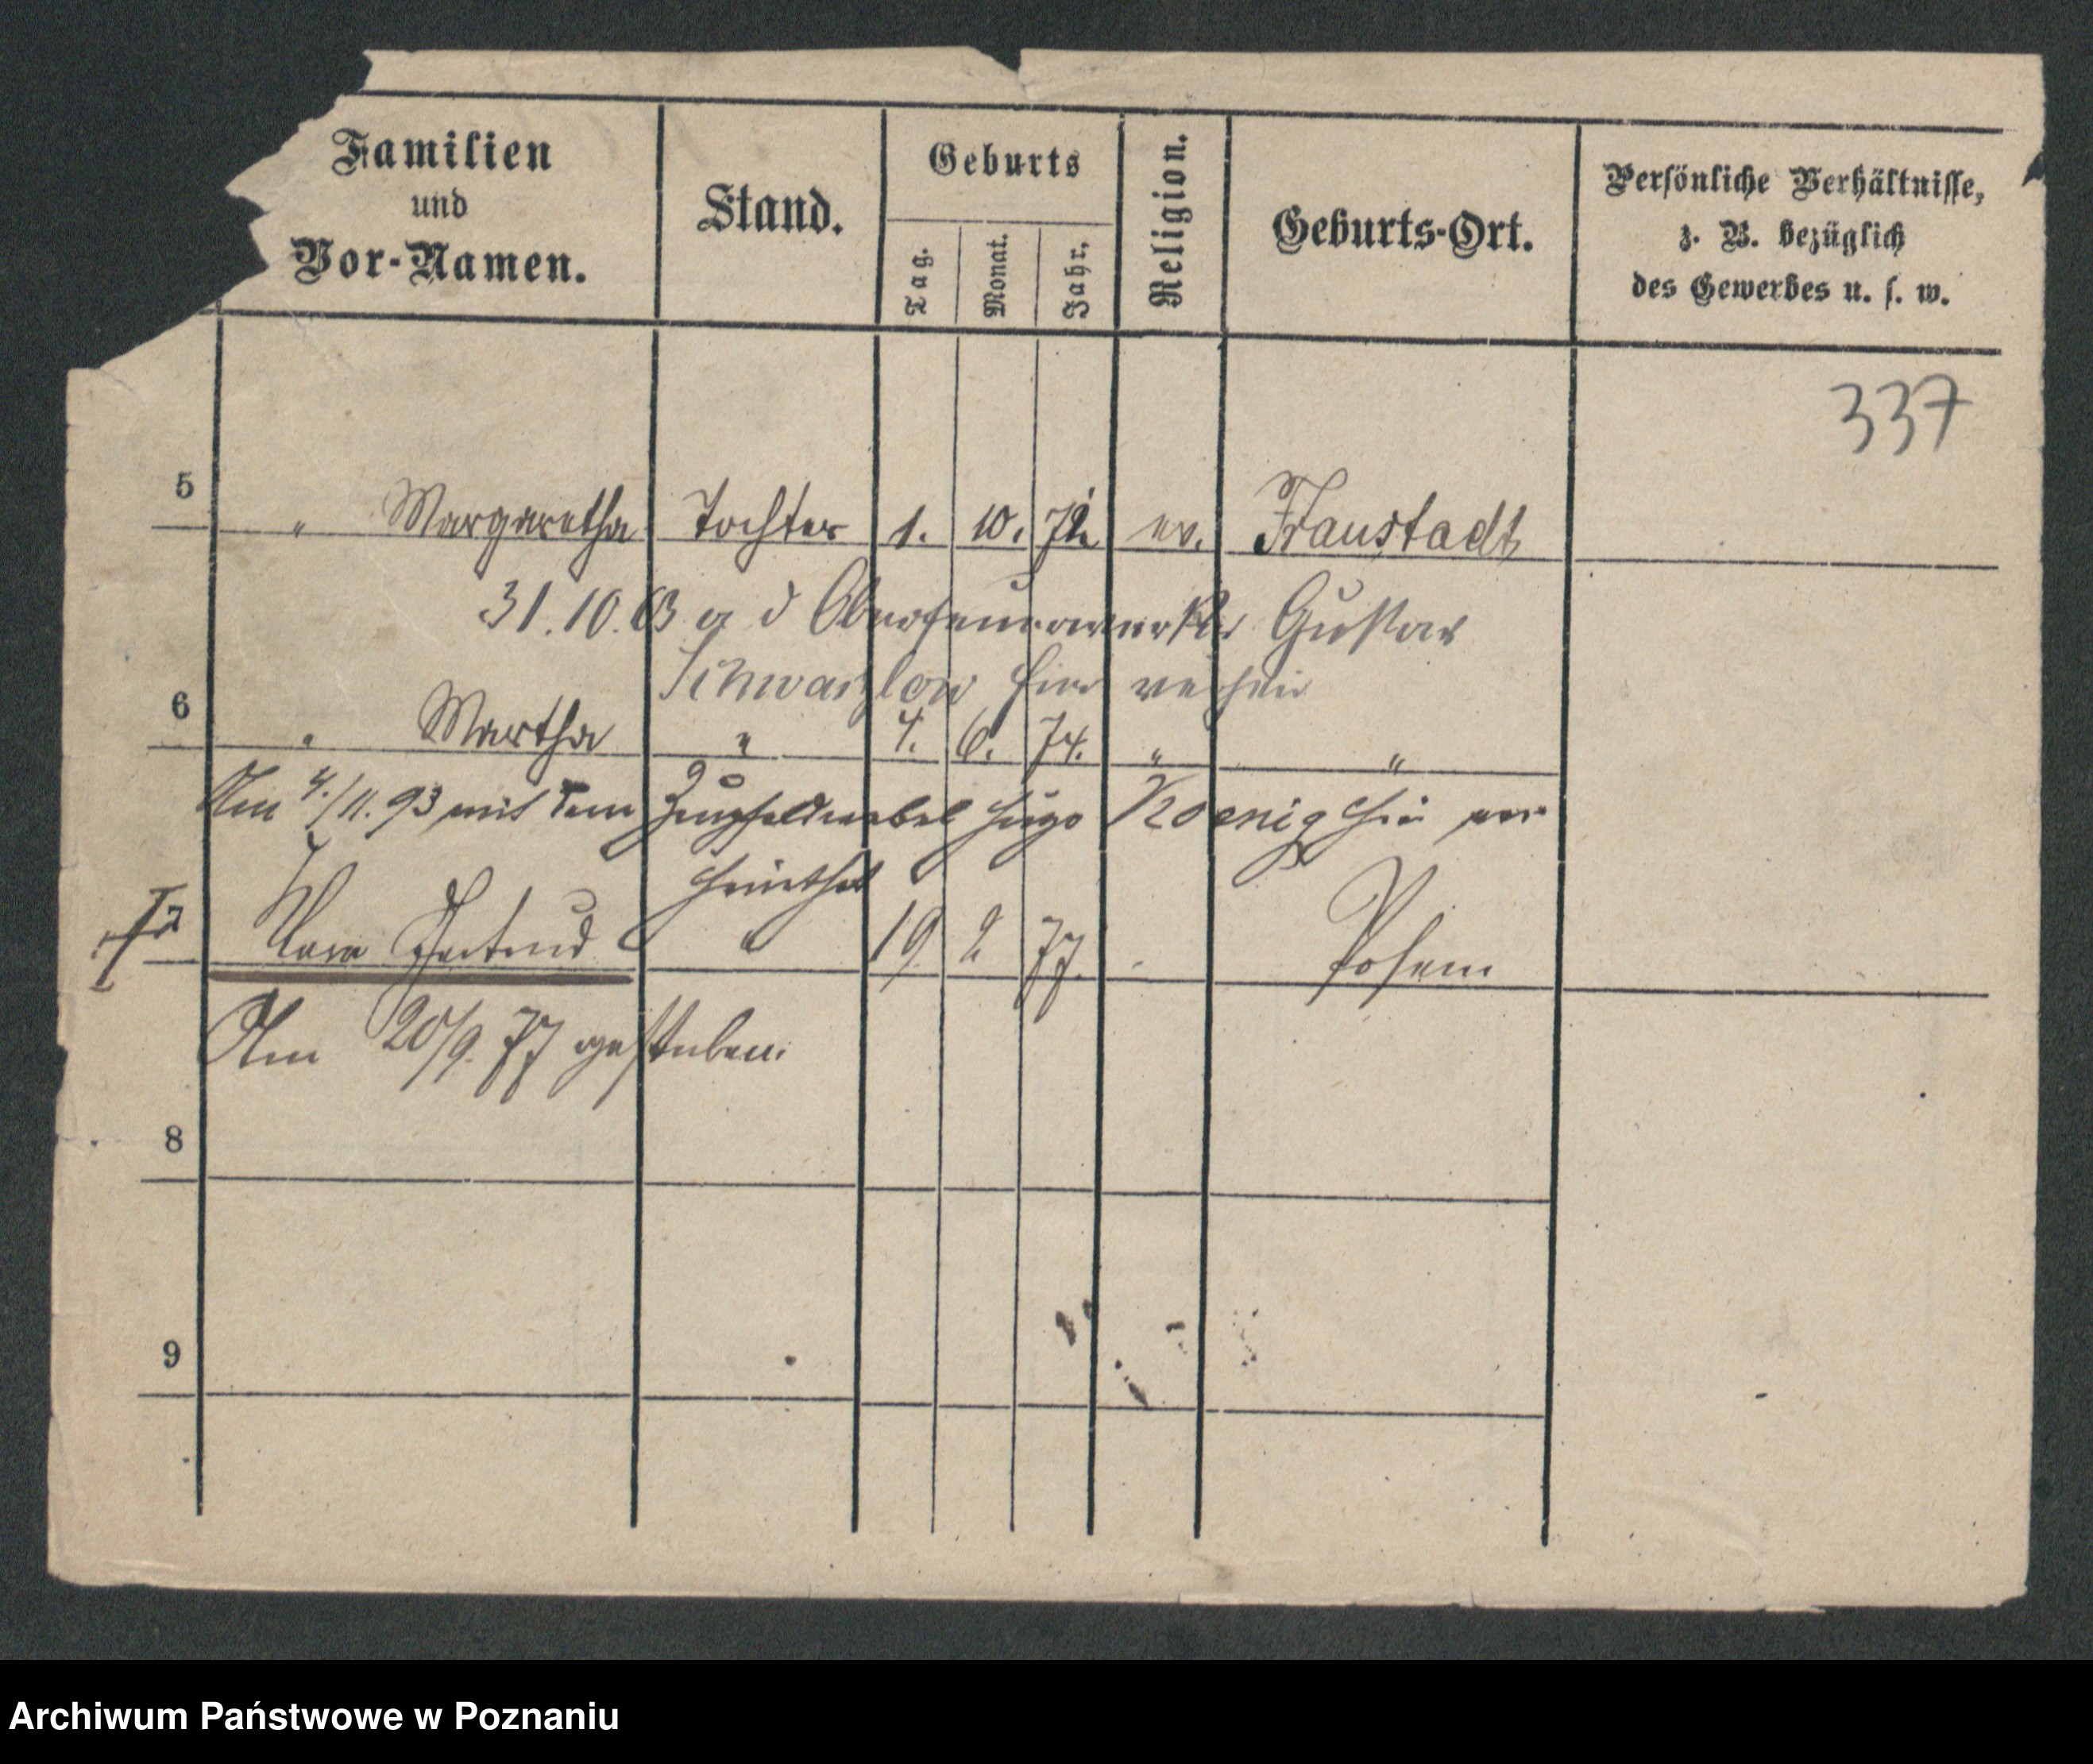 Familien
und
Vor-Namen.
Stand.
Geburts
Tag.
Monat.
Jahr.
Religion.
Geburts-Ort.
Persönliche Verhältnisse,
z. B. bezüglich
des Gewerbes u. s. w.
337
5 " Margaretha Tochter 1. 10. 72 ev. Fraustadt
31.10.93 a d Oberfeuerwerker Gustav
Schwarzlow hier verheir
6 " Martha " 4. 6. 74. " "
Am 4./11.93 mit dem Zeugfeldwebel Hugo Koenig hier ver
heirathet
7 Clara Gertrud " 19 2 77. Posen
Am 20/9.77 gestorben.
8
9
Archiwum Państwowe w Poznaniu